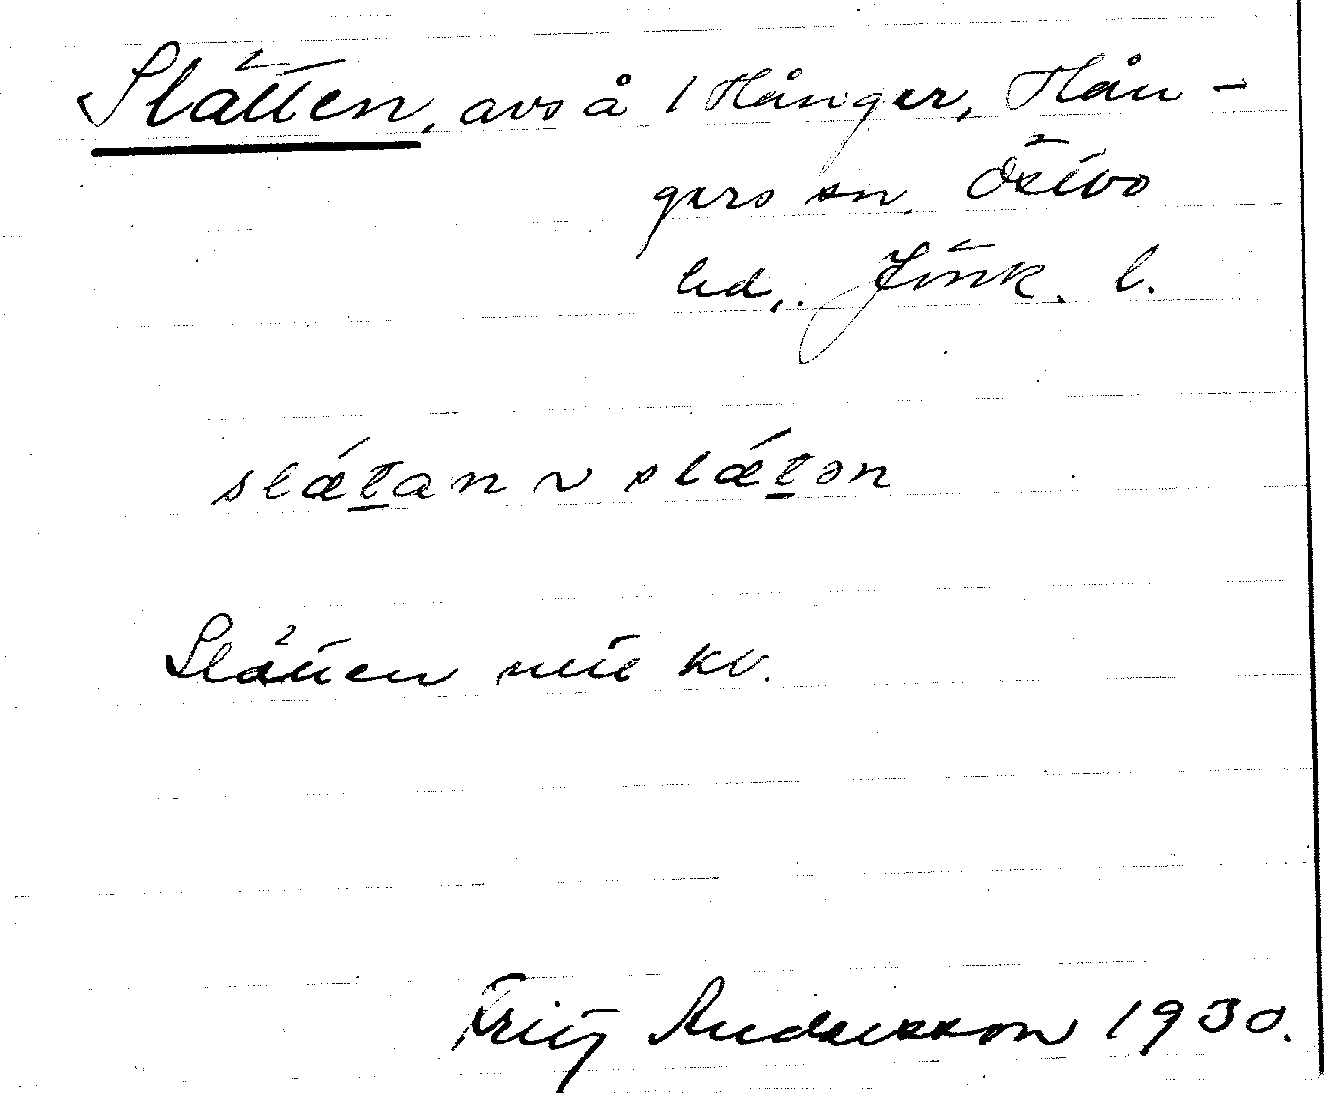 Slätten, avs å 1 Hånger, Hån-
gers sn. Östbo
hd, Jönk. l.
slǽt̲an ~ slǽt̲ən
Slätten utie kv.
Fritz Andersson 1930.